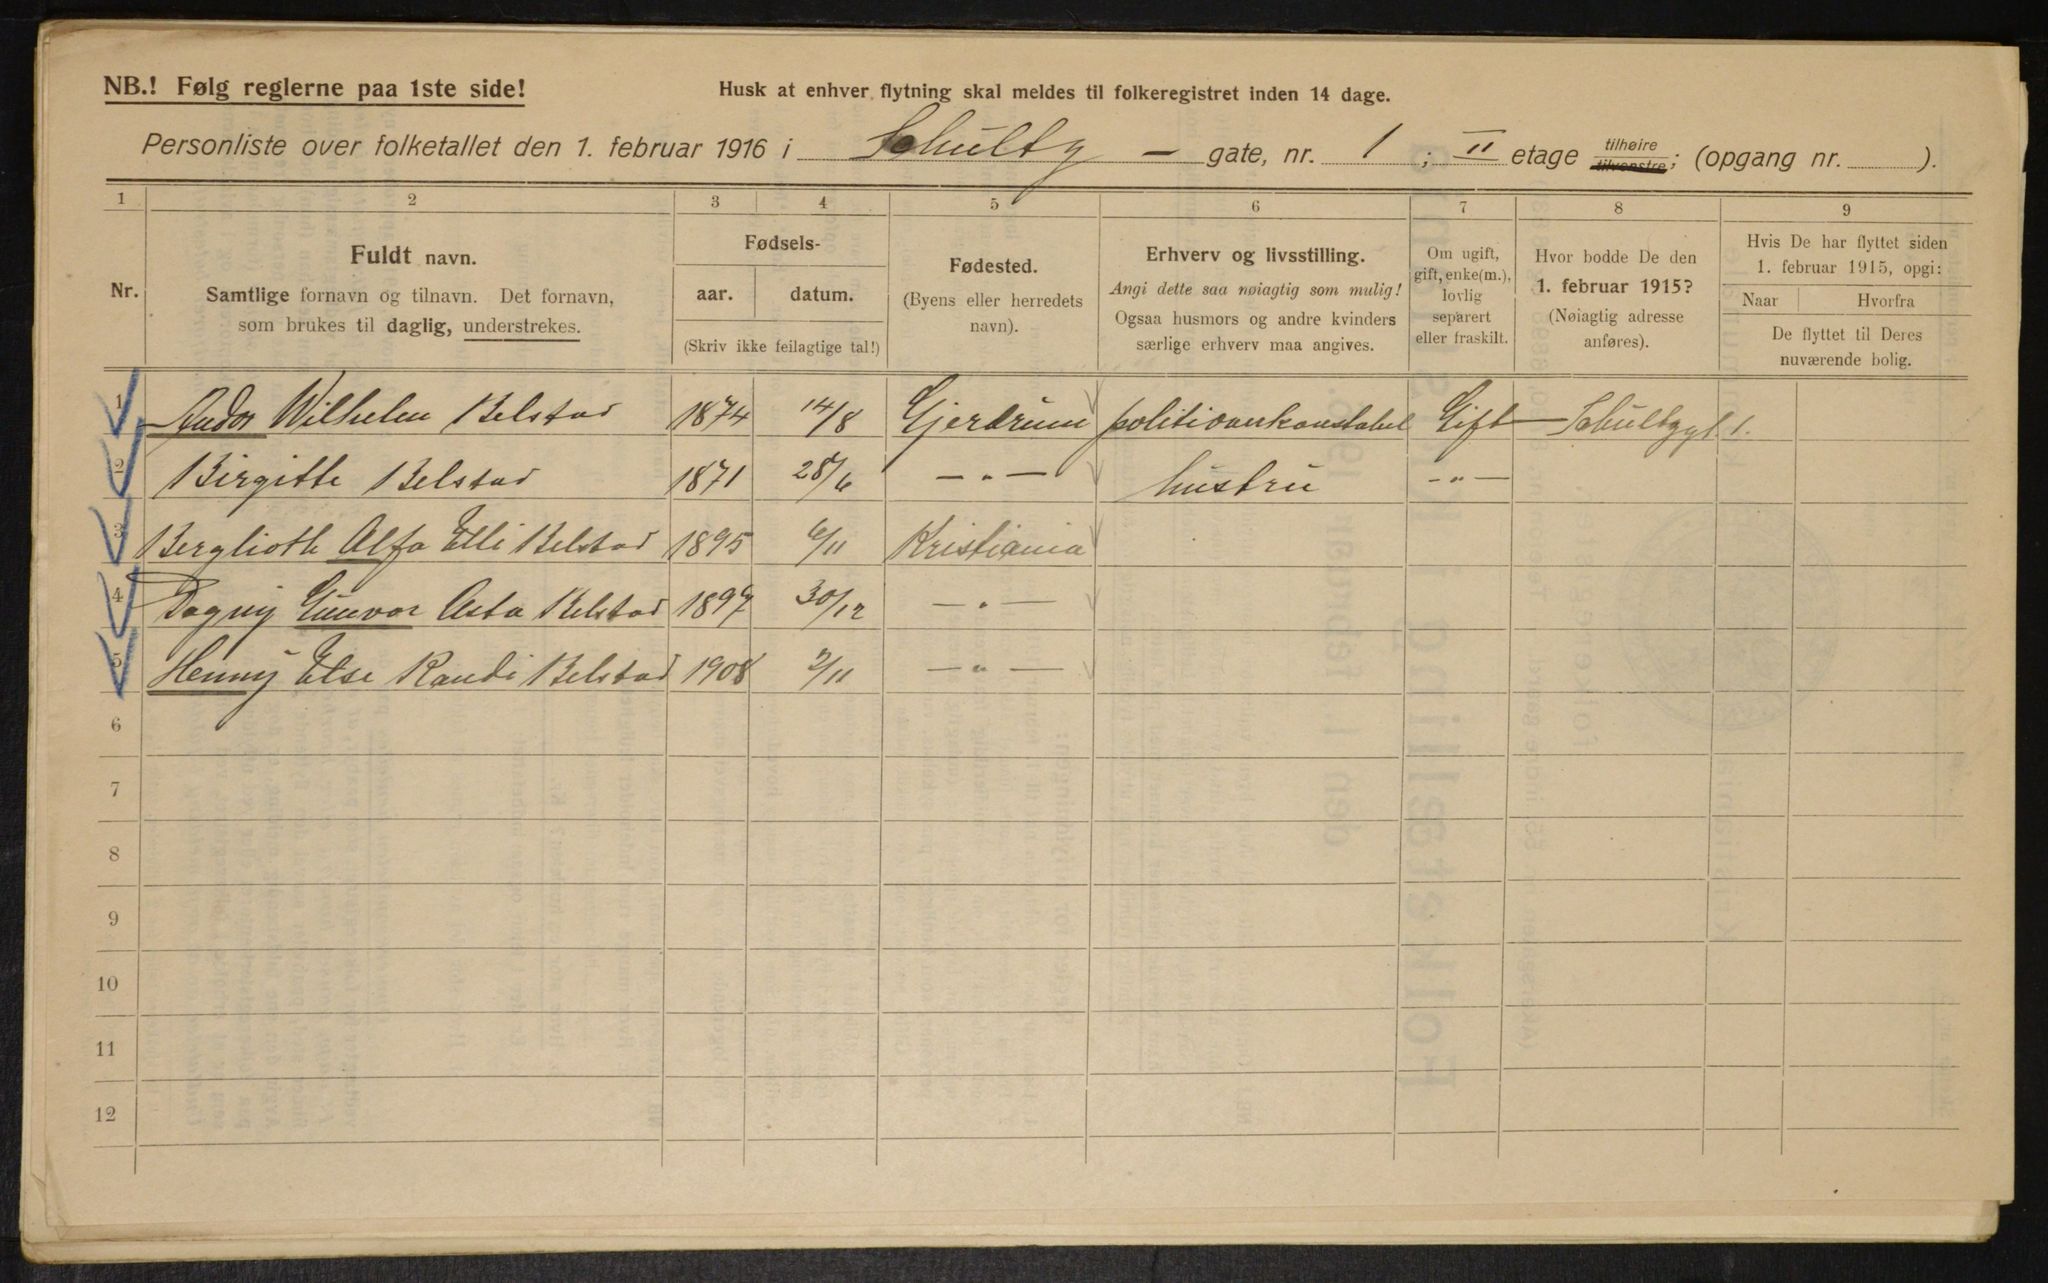 NB.! Følg reglerne paa 1ste side!
Husk at enhver flytning skal meldes til folkeregistret inden 14 dage.
Personliste over folketallet den 1. februar 1916 i Schultz - gate, nr. 1 ; II etage tilhøire tilvenstre; (opgang nr. ).
1 2 3 4 5 6 7 8 9
Nr.
Fuldt navn.
Samtlige fornavn og tilnavn. Det fornavn,
som brukes til daglig, understrekes.
Fødsels-
aar. datum.
(Skriv ikke feilagtige tal!)
Fødested.
(Byens eller herredets
navn).
Erhverv og livsstilling.
Angi dette saa nøiagtig som mulig!
Ogsaa husmors og andre kvinders
særlige erhverv maa angives.
Om ugift,
gift, enke(m.),
lovlig
separert
eller fraskilt.
Hvor bodde De den
1. februar 1915?
(Nøiagtig adresse
anføres).
Hvis De har flyttet siden
1. februar 1915, opgi:
Naar Hvorfra
De flyttet til Deres
nuværende bolig.
1 Andor Wilhelm Belstad 1874 14/8 Gjerdrum politioverkonstabel Gift Schultzgt. 1.
2 Birgitte Belstad 1871 28/6 — " — hustru — " —
3 Berglioth Alfa Elli Belstad 1895 6/11 Kristiania
4 Dagny Gunvor Asta Belstad 1897 30/12 — " —
5 Henny Else Randi Belstad 1908 2/11 — " —
6
7
8
9
10
11
12